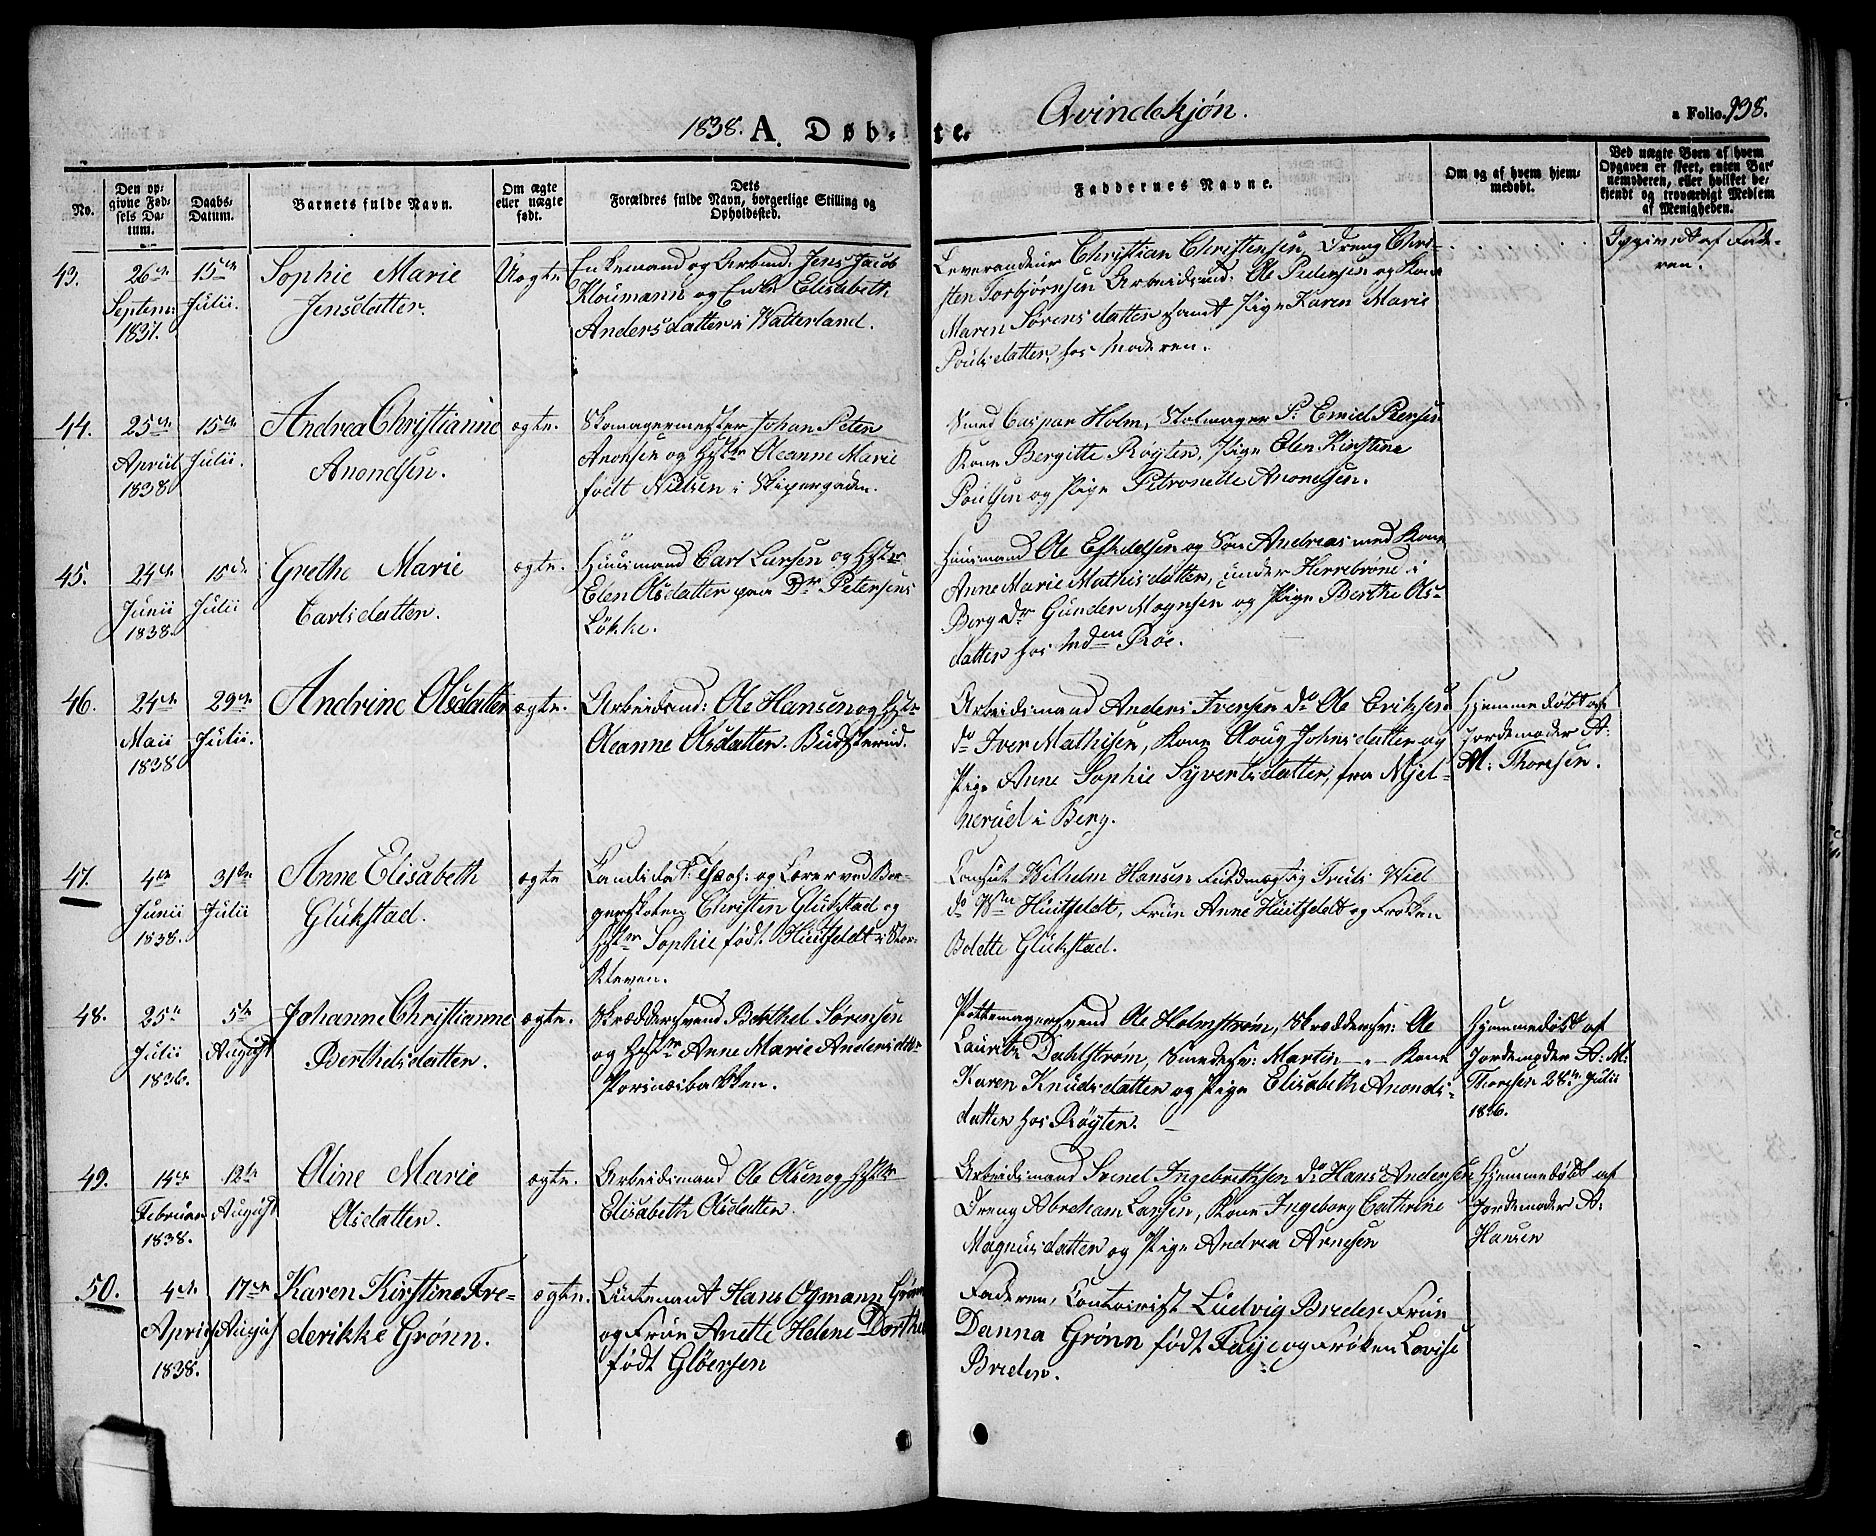 1838. A. Døb-te. Qvindekjøn. a Folio. 938.
No.
Den opgivne Fødsels Datum.
Daabs-Datum.
Barnets fulde Navn.
Om ægte eller uægte født.
Forældres fulde Navn, borgerlige Stilling og Opholdssted.
Faddernes Navne.
Om og af hvem hjemmedøbt.
Ved uægte Børn af hvem Opgaven er skeet, enten Barnemoderen, eller hvilket bekjendt og troværdigt Medlem af Menigheden.
43.
26de
Septemb:
1837.
15de
Julii.
Sophie Marie
Jensdatter.
Uægte.
Enkemand og Arbmd: Jens Jacob
Kloumann og Enke Elisabeth
Andersdatter i Watterland.
Leverandeur Christian Christensen, Dreng Chri-
sten Torbjørnsen Arbeidsmd: Ole Pedersen og Kone
Maren Sørensdatter samt Pige Karen Marie
Poulsdatter, hos Moderen.
Opgivet af Fade-
ren.
44.
25de
April
1838.
15de
Julii.
Andrea Christianne
Anondsen.
ægte.
Skomagermester Johan Peter
Anonsen og Hstr Oleanne Marie
født Nielsen i Skipergaden.
Smed Caspar Holm, Stolmager P. Emid Petersen
Kone Bergitte Røyten, Pige Elen Kirstine
Poulsen og Pige Petronelle Anondsen.
45.
24de
Junii
1838.
15de
Julii
Grethe Marie
Carlsdatter.
ægte.
Huusmand Carl Larsen og Hstr
Elen Olsdatter paa Dr Petersens
Løkke.
Huusmand Ole Eskelsen og Søn Andreas med Kone
Anne Marie Mathisdatter, under Herrebrøne i
Berg do Gunder Mognsen og Pige Berthe Ols-
datter hos Mdm Røe.
46.
24de
Maii
1838
29de
Julii.
Andrine Olsdatter
ægte.
Arbeidsmd: Ole Hansen og Hstr
Oleanne Olsdatter. Budsterud.
Arbeidsmand Anders Iversen do Ole Eriksen
do Iver Mathisen, Kone Aloug Johnsdatter og
Pige Anne Sophie Syvertsdatter, fra Mjel-
nerud i Berg.
Hjemmedøbt af
Jordemoder A:
M: Thoresen.
47.
4de
Junii
1838.
31te
Julii
Anne Elisabeth
Glükstad.
ægte
Candidat Theol: og Lærer ved Bor-
gerskolen Christen Glükstad og
Hstr Sophie født Huitfeldt i Stor-
kleven.
Consul Wilhelm Hansen Fuldmægtig Truls Wiel
do Wm Huitfeldt, Frue Anne Huitfeldt og Frøken
Bolette Glükstad.
48.
25de
Julii
1836.
5te
August
Johanne Christianne
Berthelsdatter.
ægte.
Skræddersvend Berthel Sørensen
og Hstr Anne Marie Andersdtr
Porsnæsbakken.
Pottemagersvend Ole Holmstrøm, Skræddersv: Ole
Lauritz Dahlstrøm, Smedesv: Martin —.— Kone
Karen Knudsdatter og Pige Elisabeth Anonds-
datter hos Røyten.
Hjemmedøbt af
Jordemoder A: M:
Thoresen 28de Julii
1836.
49.
14de
Februar
1838.
12te
August
Oline Marie
Olsdatter.
ægte.
Arbeidsmand Ole Olsen og Hstr
Elisabeth Olsdatter.
Arbeidsmand Svend Ingebrethsen do Hans Andersen
Dreng Abraham Larsen, Kone Ingeborg Cathrine
Magnusdatter og Pige Andrea Arnesen
Hjemmedøbt af
Jordemoder A:
Hansen
50.
4de
April
1838.
17de
August
Karen Kirstine Fre-
derikke Grønn.
ægte.
Lieutenant Hans Ogmann Grønn
og Frue Anette Helene Dorthea
født Gløersen
Faderen, Contoirist Ludvig Breder Frue
Danna Grønn født Faye og Frøken Lovise
Breder.